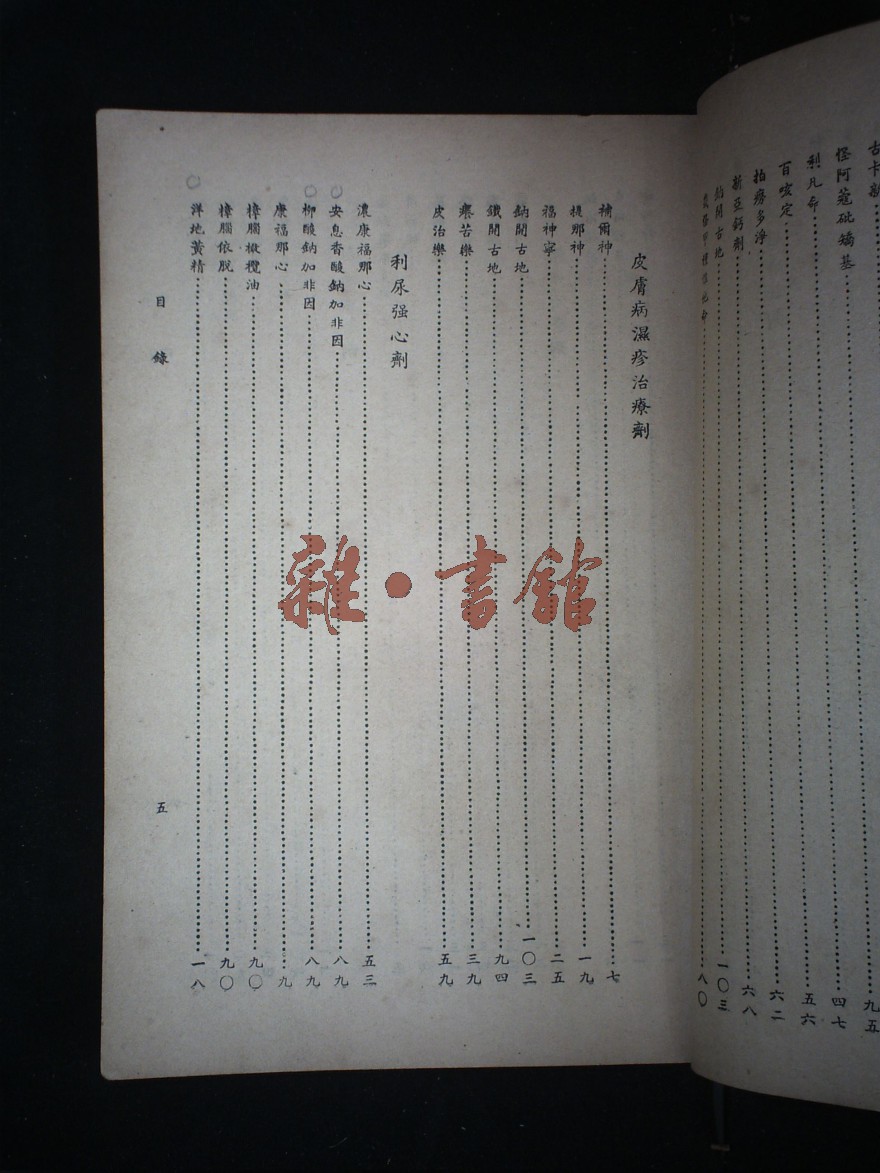 古卡
怪阿蒾砒矯基……四七
利凡命……五六
百咳定……六二
拍癆多淨
新亞鈣劑……六八
鈉開古地……一〇三
八〇
皮膚病濕疹治療劑
補爾神……七
提那神……一九
福神寧……二五
鈉開古地……一〇三
鐵開古地……九四
癢苦樂……三九
皮治樂……五九
利尿强心劑
濃康福那心……五三
○安息香酸鈉加非因……八九
○柳酸鈉加非因……八九
康福那心……九
樟腦橄欖油……九〇
樟腦依脫……九〇
○洋地黃精……一八
目錄
五
雜·書館